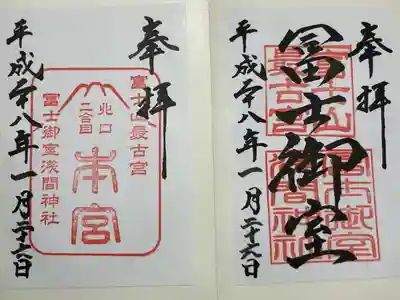 奉拝
冨士御室
富士山
最古宮
冨士御室
浅間神社
平成二十八年一月二十六日
奉拝
富士山最古宮
北口
二合目
本宮
冨士御室浅間神社
平成二十八年一月二十六日